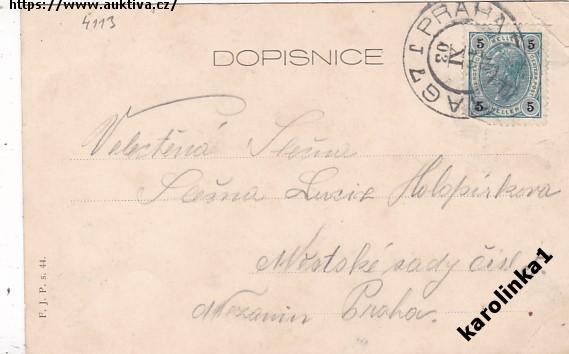 https://www.auktiva.cz/
4113
DOPISNICE
PRAHA 1 PRAG
IX
03
5 HELLER 5
5 HELLER 5
Velectěná Slečna
Slečna Lucie Holopírkova
Městské sady čís
Mezanin Praha.
F. J. P. s. 44.
karolinka1